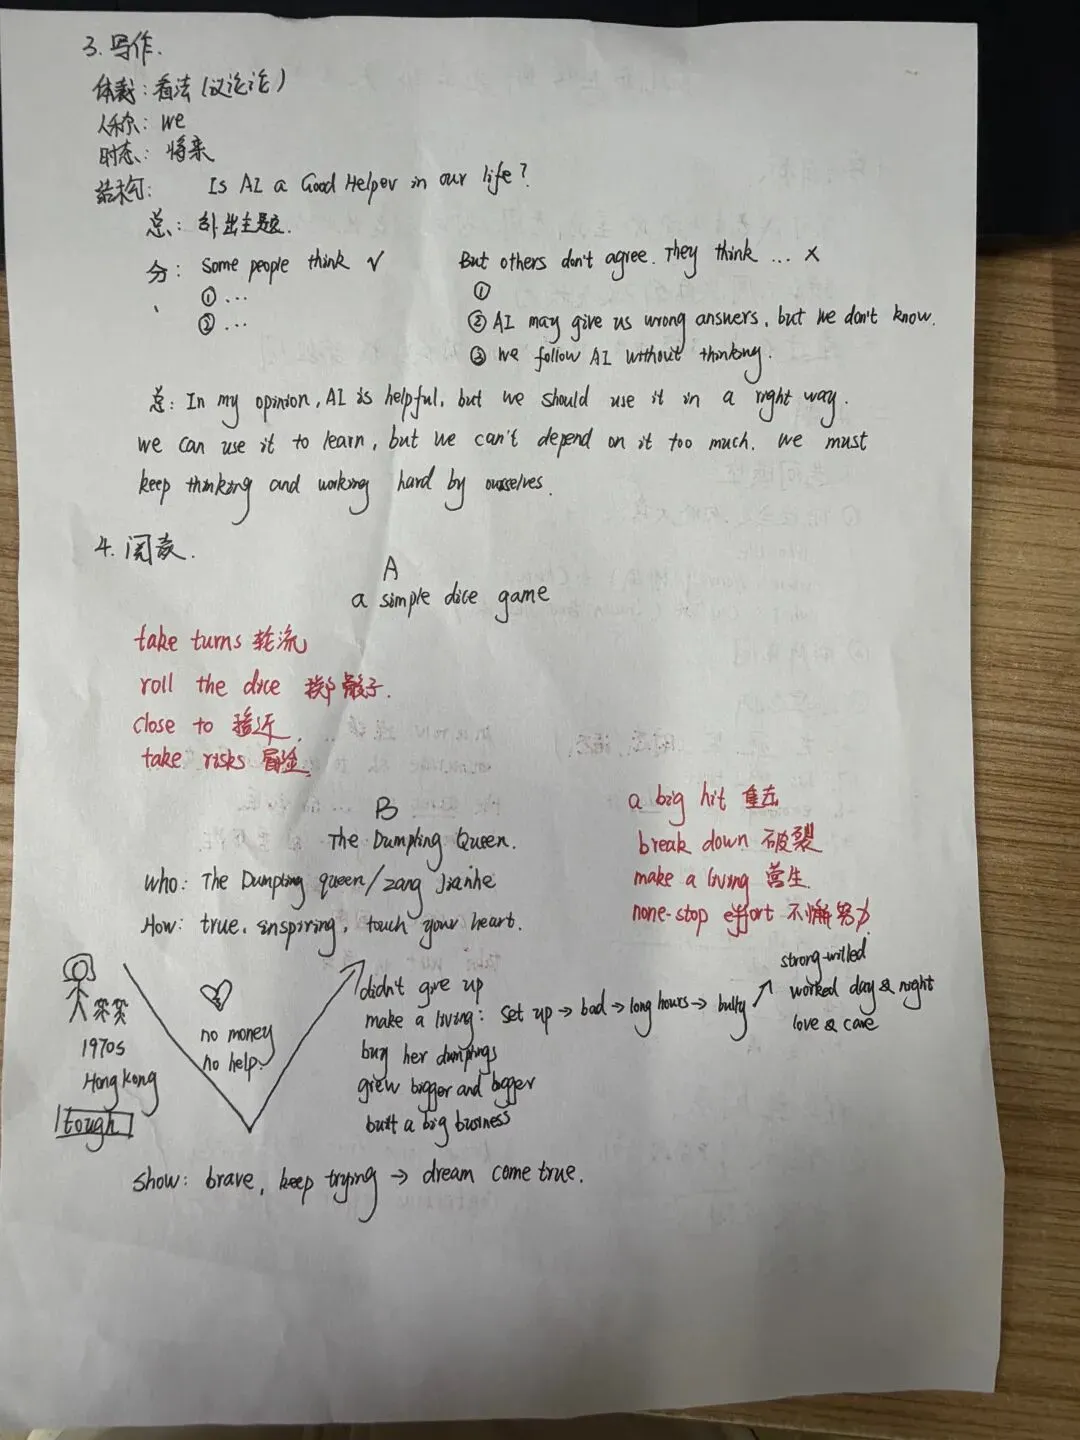 3. 写作.
体裁: 看法 (议论论)
人称: we
时态: 将来
结构: Is AI a Good Helper in our life?
总: 引出主题.
分: Some people think √
① ...
② ...
But others don't agree. They think ... ×
①
② AI may give us wrong answers, but we don't know.
③ we follow AI without thinking.
总: In my opinion, AI is helpful, but we should use it in a right way.
we can use it to learn, but we can't depend on it too much. we must
keep thinking and working hard by ourselves.
4. 阅读.
A
a simple dice game
take turns 轮流
roll the dice 掷骰子.
close to 接近.
take risks 冒险.
B
The Dumpling Queen.
who: The Dumpling queen/zang Jianhe
How: true. inspiring, touch your heart.
a big hit 重击
break down 破裂
make a living 营生.
none-stop effort 不懈努力
1970s
Hong Kong
tough
no money
no help.
didn't give up
make a living: set up → bad → long hours → bully
strong-willed
worked day & night
love & care
buy her dumplings
grew bigger and bigger
built a big business
show: brave, keep trying → dream come true.